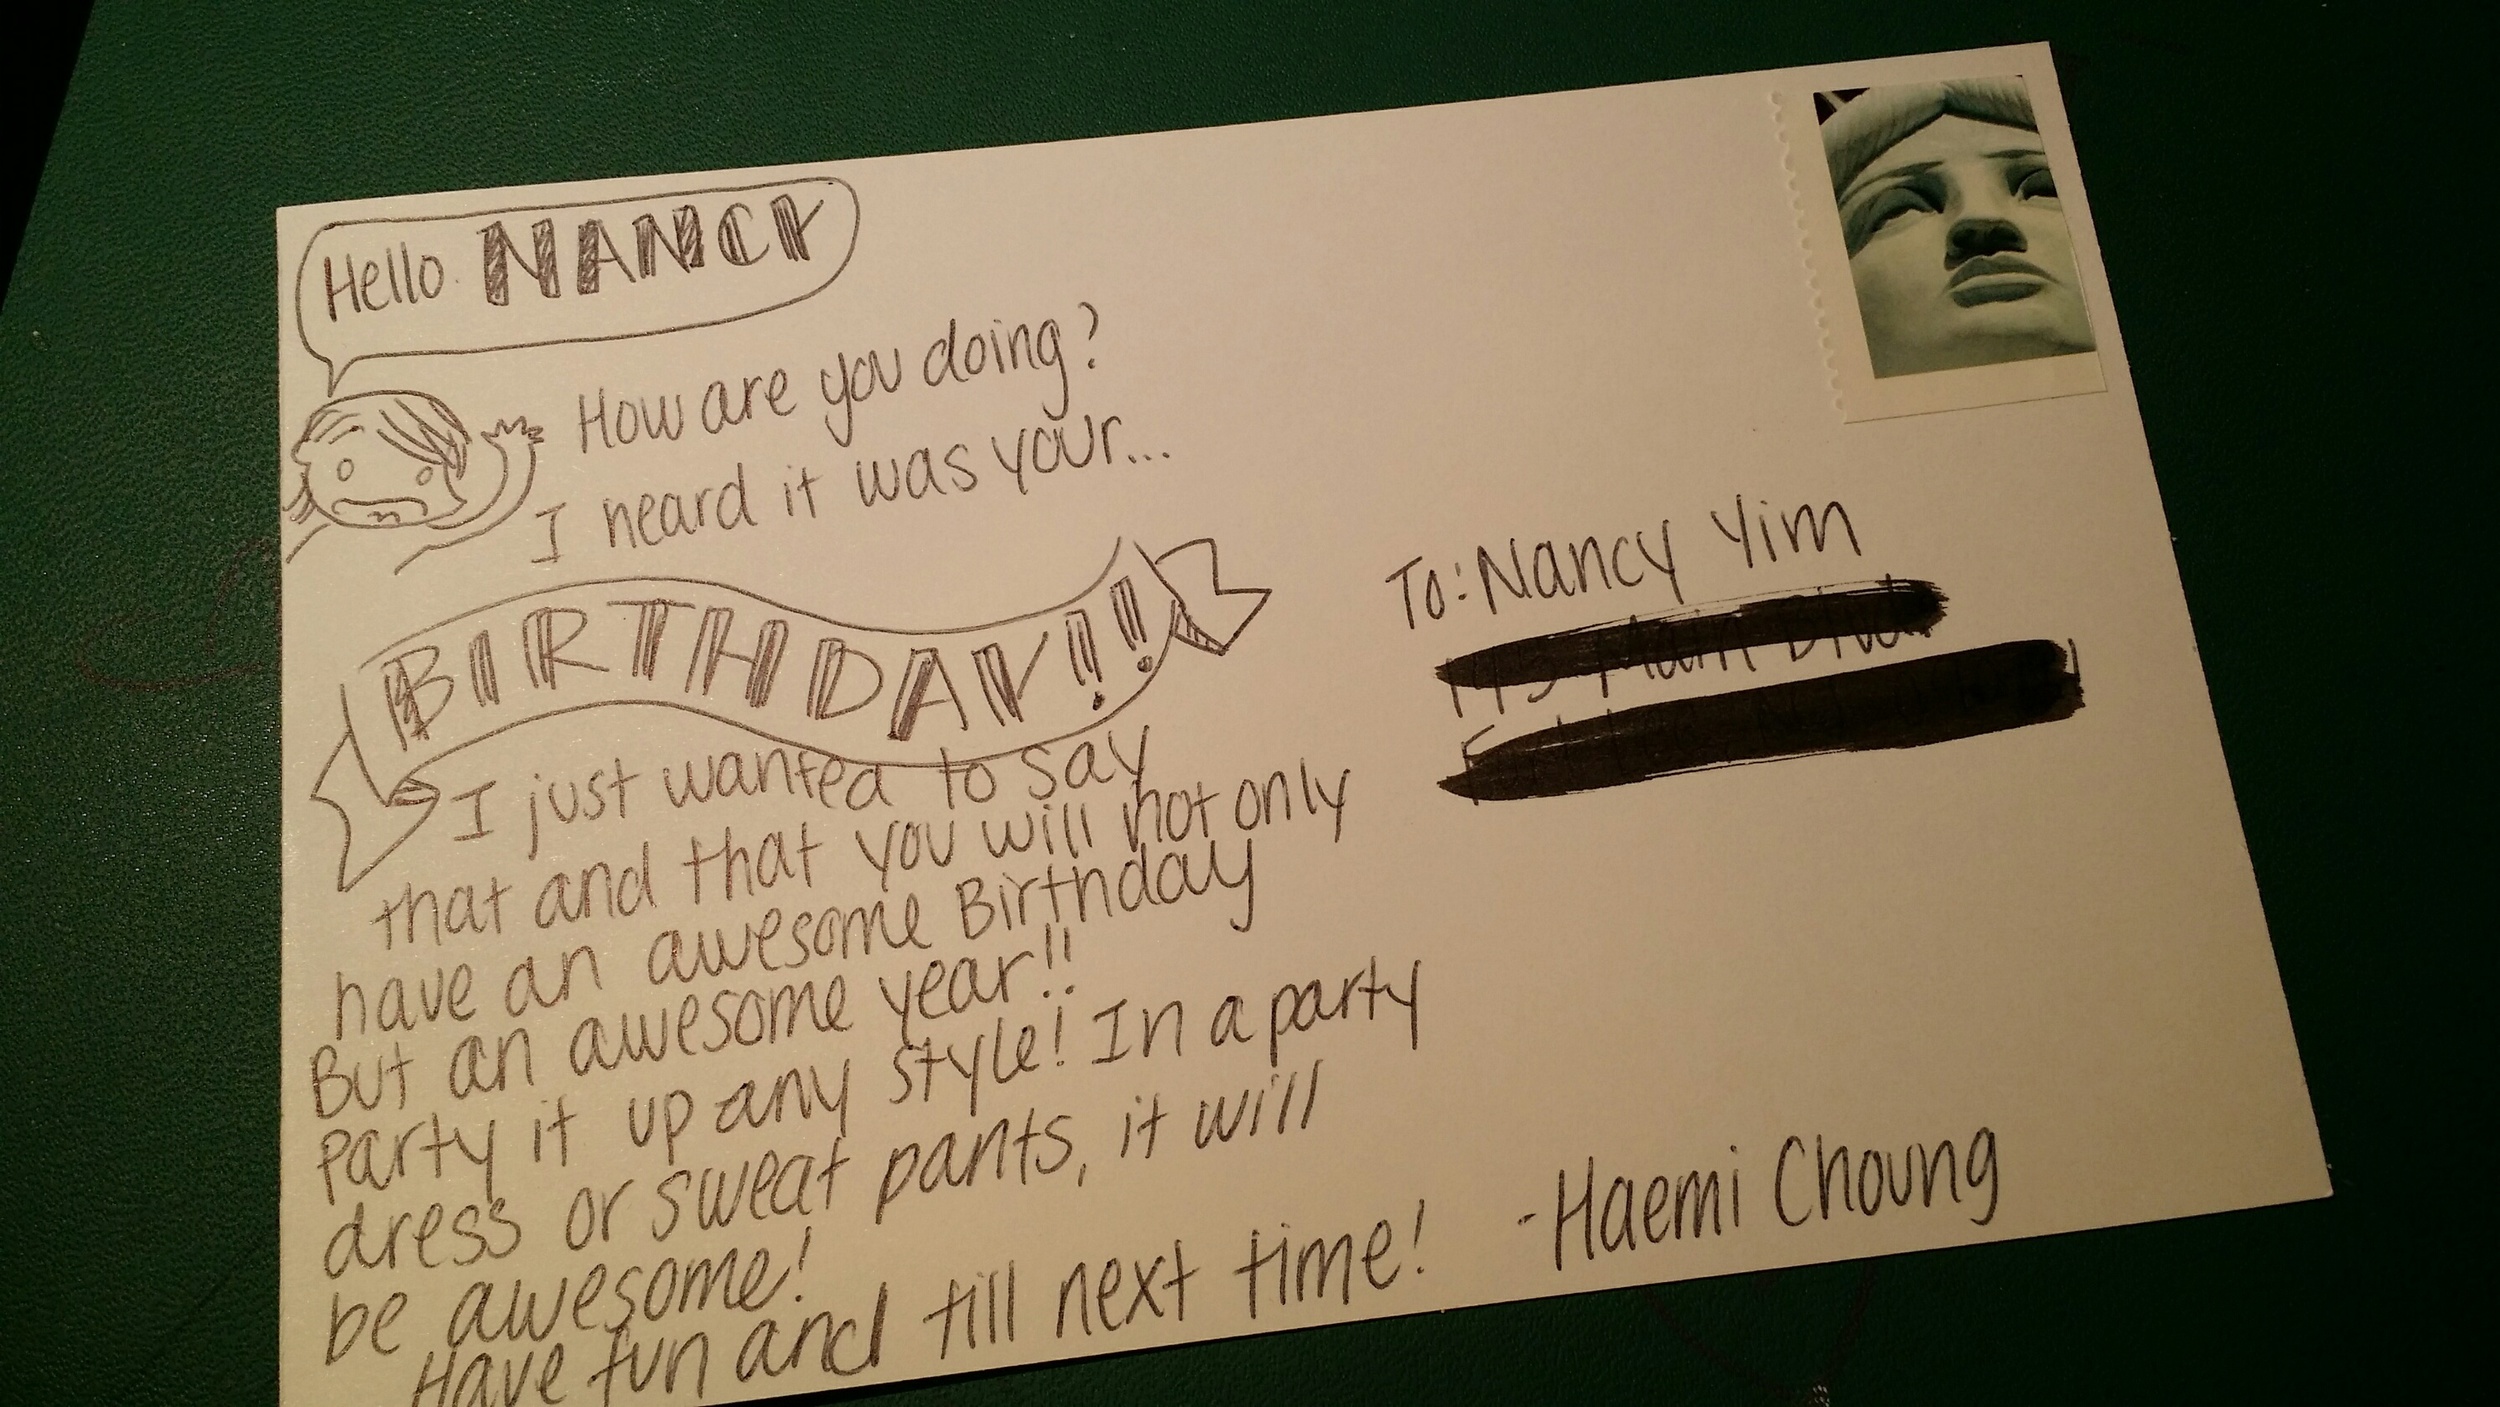 Hello NANCY
How are you doing?
I heard it was your...
BIRTHDAY!!
I just wanted to say
that and that you will not only
have an awesome Birthday
But an awesome year!!
Party it up any style! In a party
dress or sweat pants, it will
be awesome!
Have fun and till next time!
-Haemi Choung
To: Nancy Yim